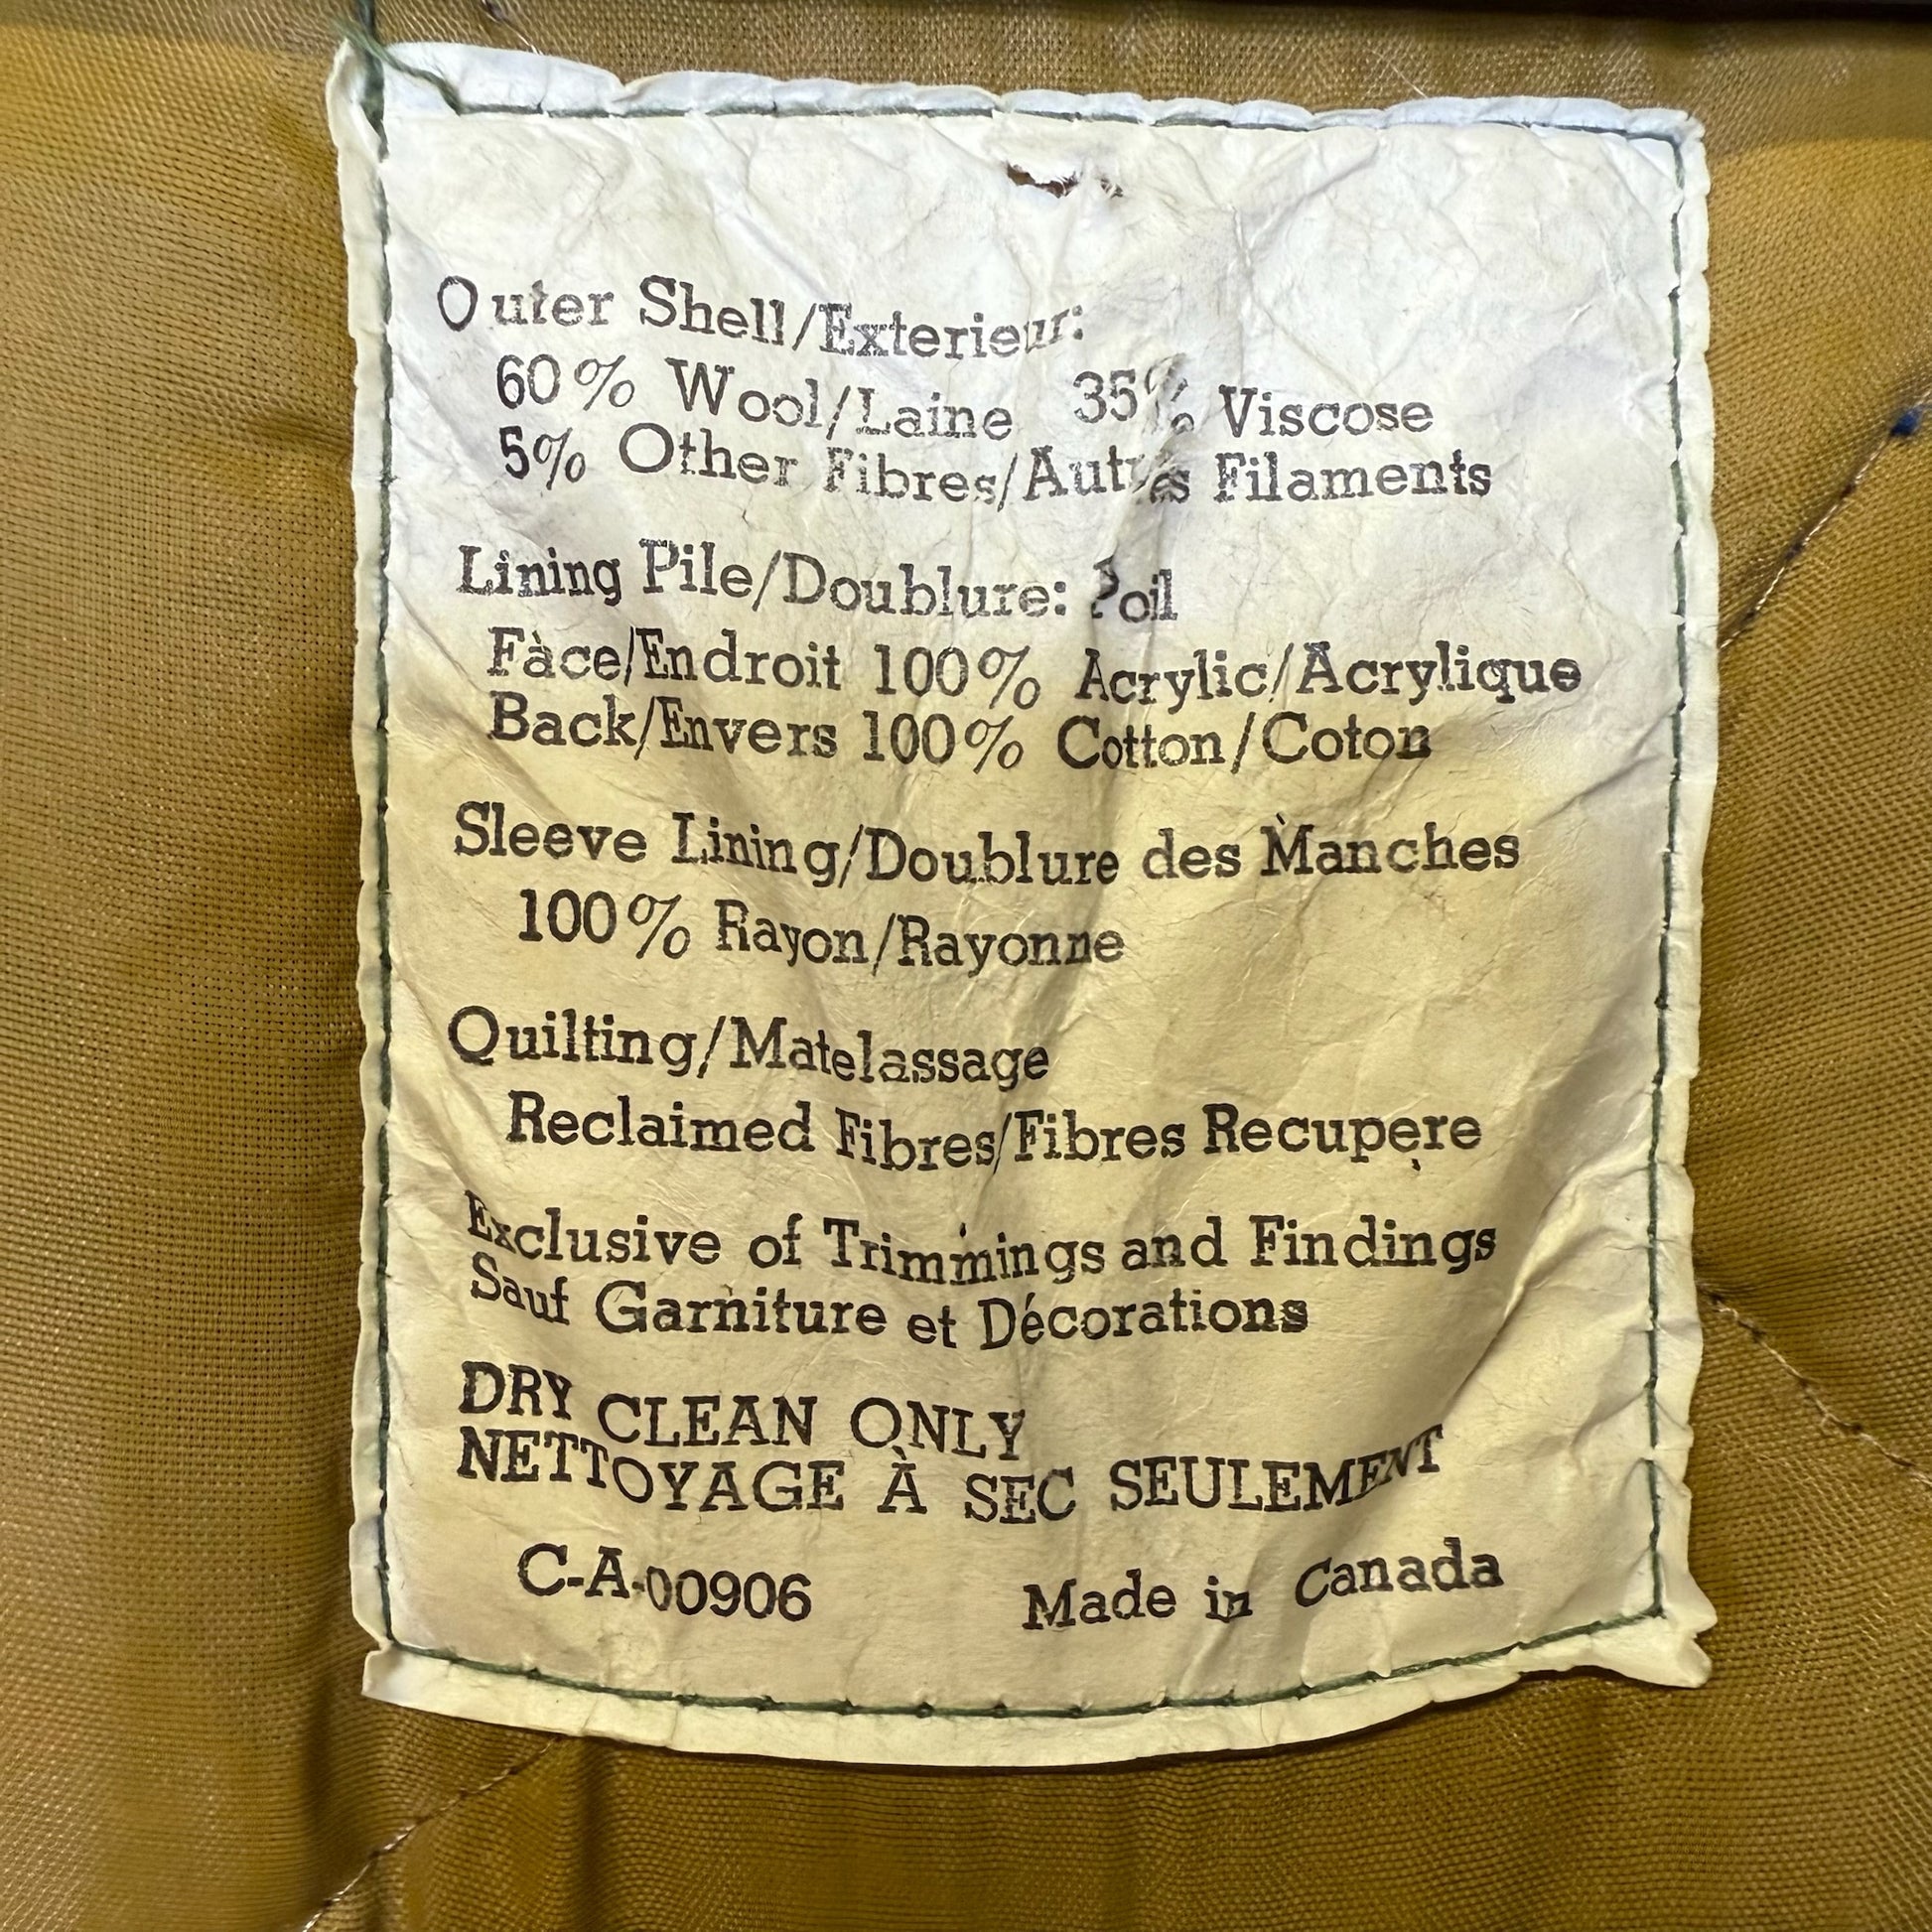 Outer Shell/Exterieur:
60% Wool/Laine 35% Viscose
5% Other Fibres/Autres Filaments
Lining Pile/Doublure: Poil
Face/Endroit 100% Acrylic/Acrylique
Back/Envers 100% Cotton/Coton
Sleeve Lining/Doublure des Manches
100% Rayon/Rayonne
Quilting/Matelassage
Reclaimed Fibres/Fibres Recupere
Exclusive of Trimmings and Findings
Sauf Garniture et Décorations
DRY CLEAN ONLY
NETTOYAGE À SEC SEULEMENT
C-A-00906 Made in Canada